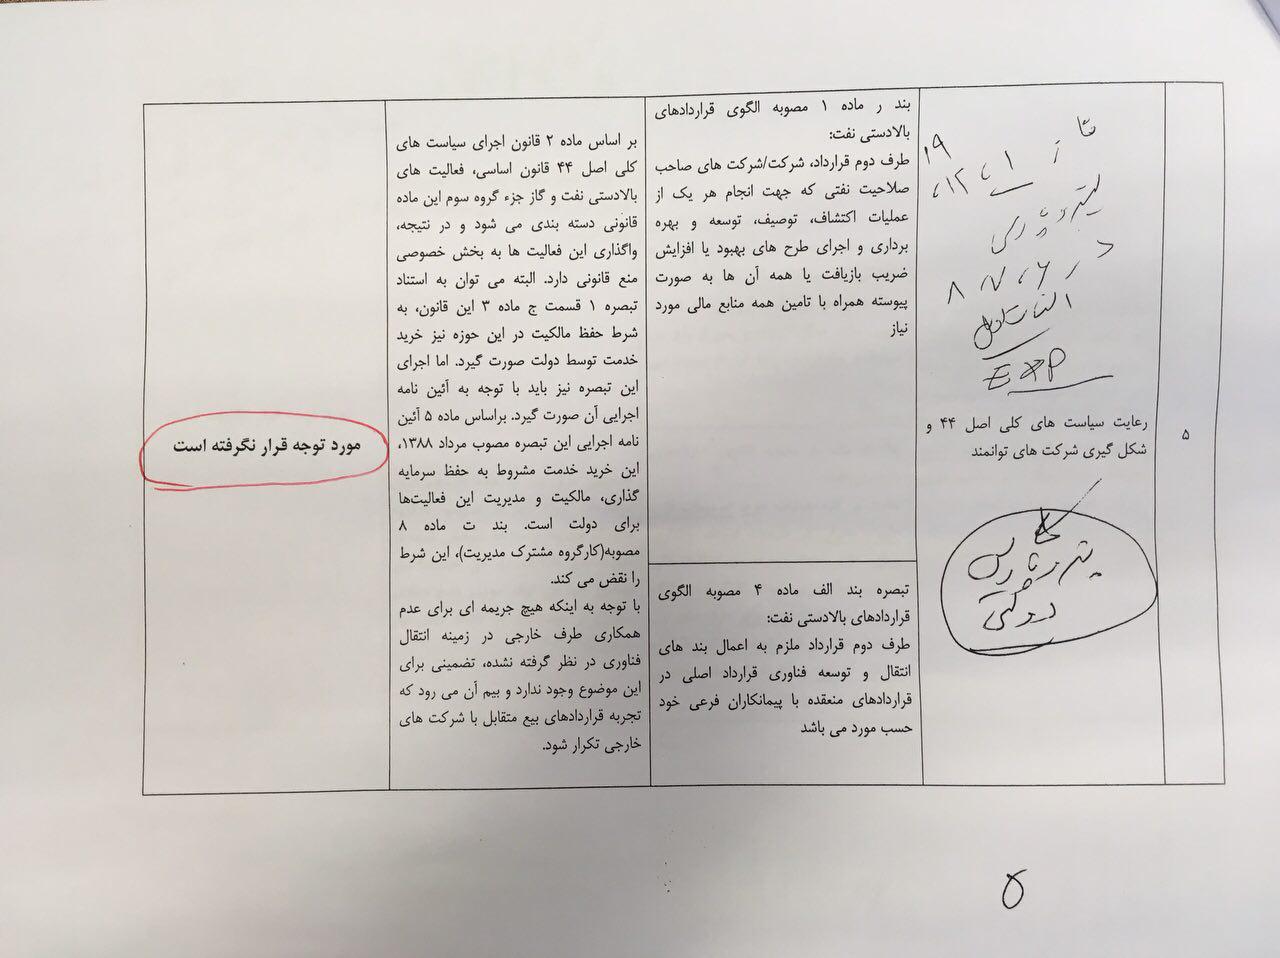 ۵
۱۹
۱، ۱۲،
پتروپارس
۸ ،۷ ،۶
EXP
رعایت سیاست های کلی اصل ۴۴ و
شکل گیری شرکت های توانمند
پتروپارس
دولتی
بند ر ماده ۱ مصوبه الگوی قراردادهای
بالادستی نفت:
طرف دوم قرارداد، شرکت/شرکت های صاحب
صلاحیت نفتی که جهت انجام هر یک از
عملیات اکتشاف، توصیف، توسعه و بهره
برداری و اجرای طرح های بهبود یا افزایش
ضریب بازیافت یا همه آن ها به صورت
پیوسته همراه با تامین همه منابع مالی مورد
نیاز
تبصره بند الف ماده ۴ مصوبه الگوی
قراردادهای بالادستی نفت:
طرف دوم قرارداد ملزم به اعمال بند های
انتقال و توسعه فناوری قرارداد اصلی در
قراردادهای منعقده با پیمانکاران فرعی خود
حسب مورد می باشد
بر اساس ماده ۲ قانون اجرای سیاست های
کلی اصل ۴۴ قانون اساسی، فعالیت های
بالادستی نفت و گاز جزء گروه سوم این ماده
قانونی دسته بندی می شود و در نتیجه،
واگذاری این فعالیت ها به بخش خصوصی
منع قانونی دارد. البته می توان به استناد
تبصره ۱ قسمت ج ماده ۳ این قانون، به
شرط حفظ مالکیت در این حوزه نیز خرید
خدمت توسط دولت صورت گیرد. اما اجرای
این تبصره نیز باید با توجه به آئین نامه
اجرایی آن صورت گیرد. براساس ماده ۵ آئین
نامه اجرایی این تبصره مصوب مرداد ۱۳۸۸،
این خرید خدمت مشروط به حفظ سرمایه
گذاری، مالکیت و مدیریت این فعالیت‌ها
برای دولت است. بند ت ماده ۸
مصوبه(کارگروه مشترک مدیریت)، این شرط
را نقض می کند.
با توجه به اینکه هیچ جریمه ای برای عدم
همکاری طرف خارجی در زمینه انتقال
فناوری در نظر گرفته نشده، تضمینی برای
این موضوع وجود ندارد و بیم آن می رود که
تجربه قراردادهای بیع متقابل با شرکت های
خارجی تکرار شود.
مورد توجه قرار نگرفته است
۵